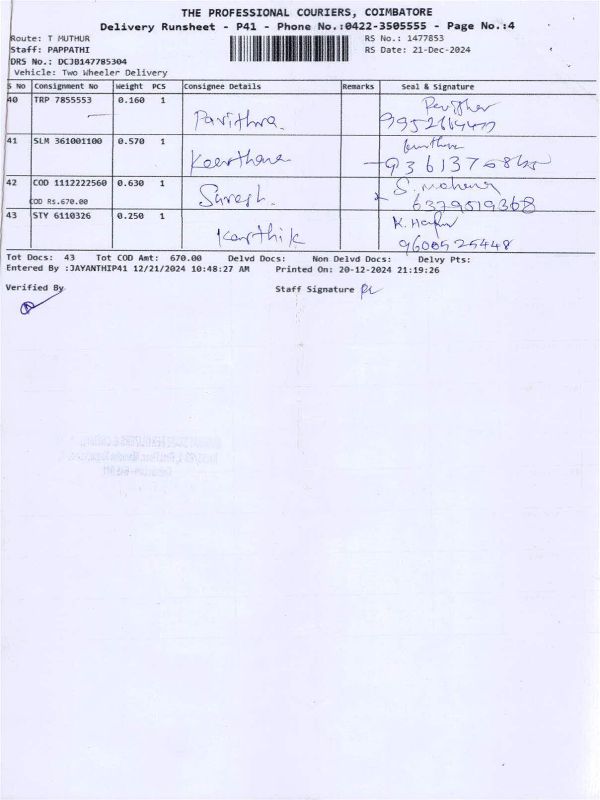 THE PROFESSIONAL COURIERS, COIMBATORE
Delivery Runsheet - P41 - Phone No.:0422-3505555 - Page No.:4
Route: T MUTHUR RS No.: 1477853
Staff: PAPPATHI RS Date: 21-Dec-2024
DRS No.: DCJB147785304
Vehicle: Two Wheeler Delivery
S No Consignment No Weight PCS Consignee Details Remarks Seal & Signature
40 TRP 7855553 0.160 1 Pavithra.
41 SLM 361001100 0.570 1 Keerthana
42 COD 1112222560 0.630 1 Suresh. S. Mohana
COD Rs.670.00 6379519368
43 STY 6110326 0.250 1 Karthik
9600525448
Tot Docs: 43 Tot COD Amt: 670.00 Delvd Docs: Non Delvd Docs: Delvy Pts:
Entered By :JAYANTHIP41 12/21/2024 10:48:27 AM Printed On: 20-12-2024 21:19:26
Verified By
Staff Signature